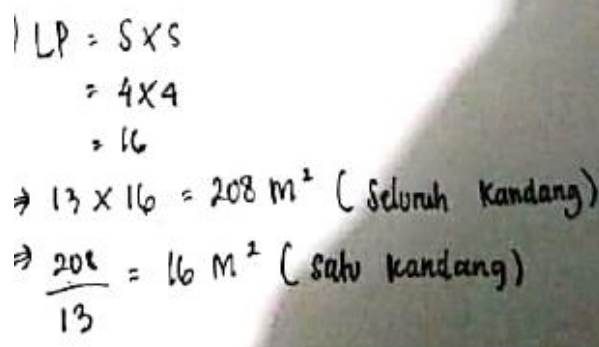 ) LP = S x S
= 4 x 4
= 16
⇒ 13 x 16 = 208 m² ( Seluruh Kandang )
⇒ 208/13 = 16 M² ( satu kandang )